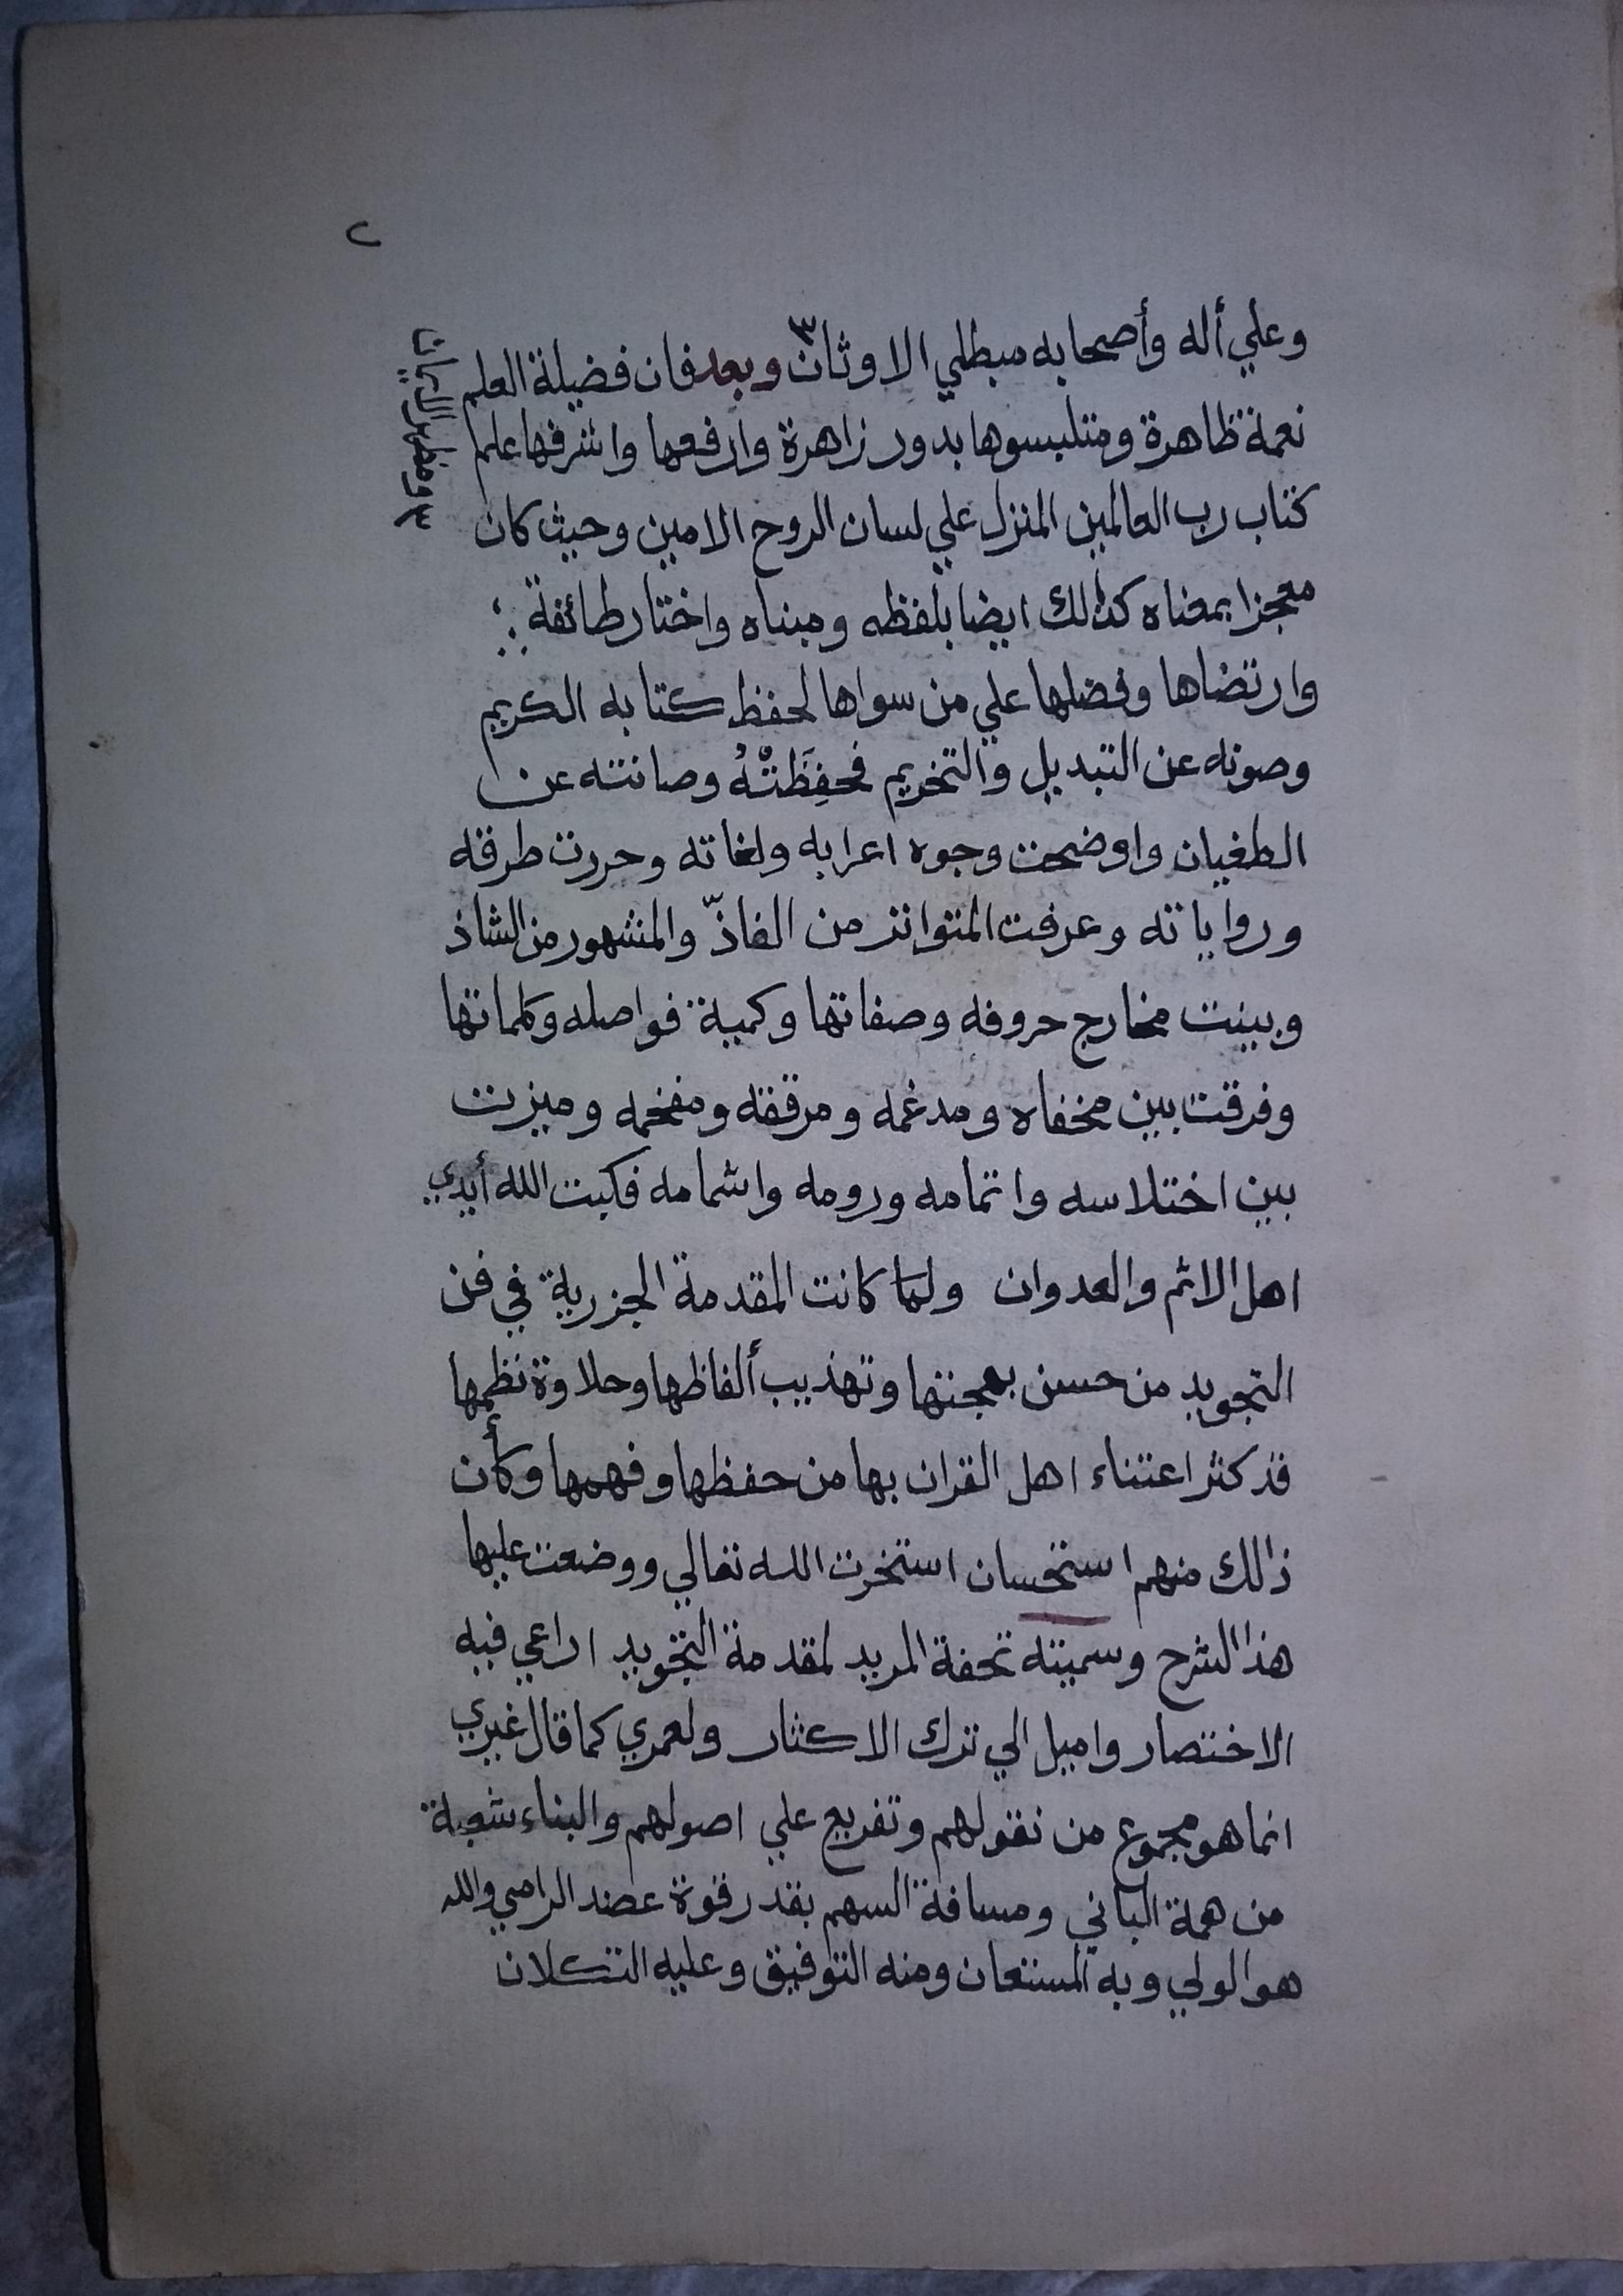 ٢
وعلي أله وأصحابه مبطلي الاوثان٣ وبعد فان فضيلة العلم
نعمة ظاهرة ومتلبسوها بدور زاهرة وارفعها واشرفها علم
كتاب رب العالمين المنزل علي لسان الروح الامين وحيث كان
معجزا بمعناه كذلك ايضا بلفظه ومبناه واختار طائفة
وارتضاها وفضلها علي من سواها لحفظ كتابه الكريم
وصونه عن التبديل والتخريم فحفِظَتْهُ وصانته عن
الطغيان واوضحت وجوه اعرابه ولغاته وحررت طرقه
ورواياته وعرفت المتواتر من الفاذّ والمشهور من الشاذ
وبينت مخارج حروفه وصفاتها وكمية فواصله وكلماتها
وفرقت بين مخفاه ومدغمه ومرققه ومفخمه وميزت
بين اختلاسه واتمامه ورومه واشمامه فكبت الله أيدي
اهل الاثم والعدوان ولما كانت المقدمة الجزرية في فن
التجويد من حسن بهجتها وتهذيب ألفاظها وحلاوة نظمها
قد كثر اعتناء اهل القران بها من حفظها وفهمها وكأن
ذالك منهم استحسان استخرت الله تعالي ووضعت عليها
هذا الشرح وسميته تحفة المريد لمقدمة التجويد اراعي فيه
الاختصار واميل الي ترك الاكثار ولعمري كما قال غيري
انما هو مجموع من نقولهم وتفريع علي اصولهم والبناء شعبة
من همة الباني ومسافة السهم بقدر قوة عضد الرامي والله
هو الولي وبه المستعان ومنه التوفيق وعليه التكلان
٣ ومظهر الاديان